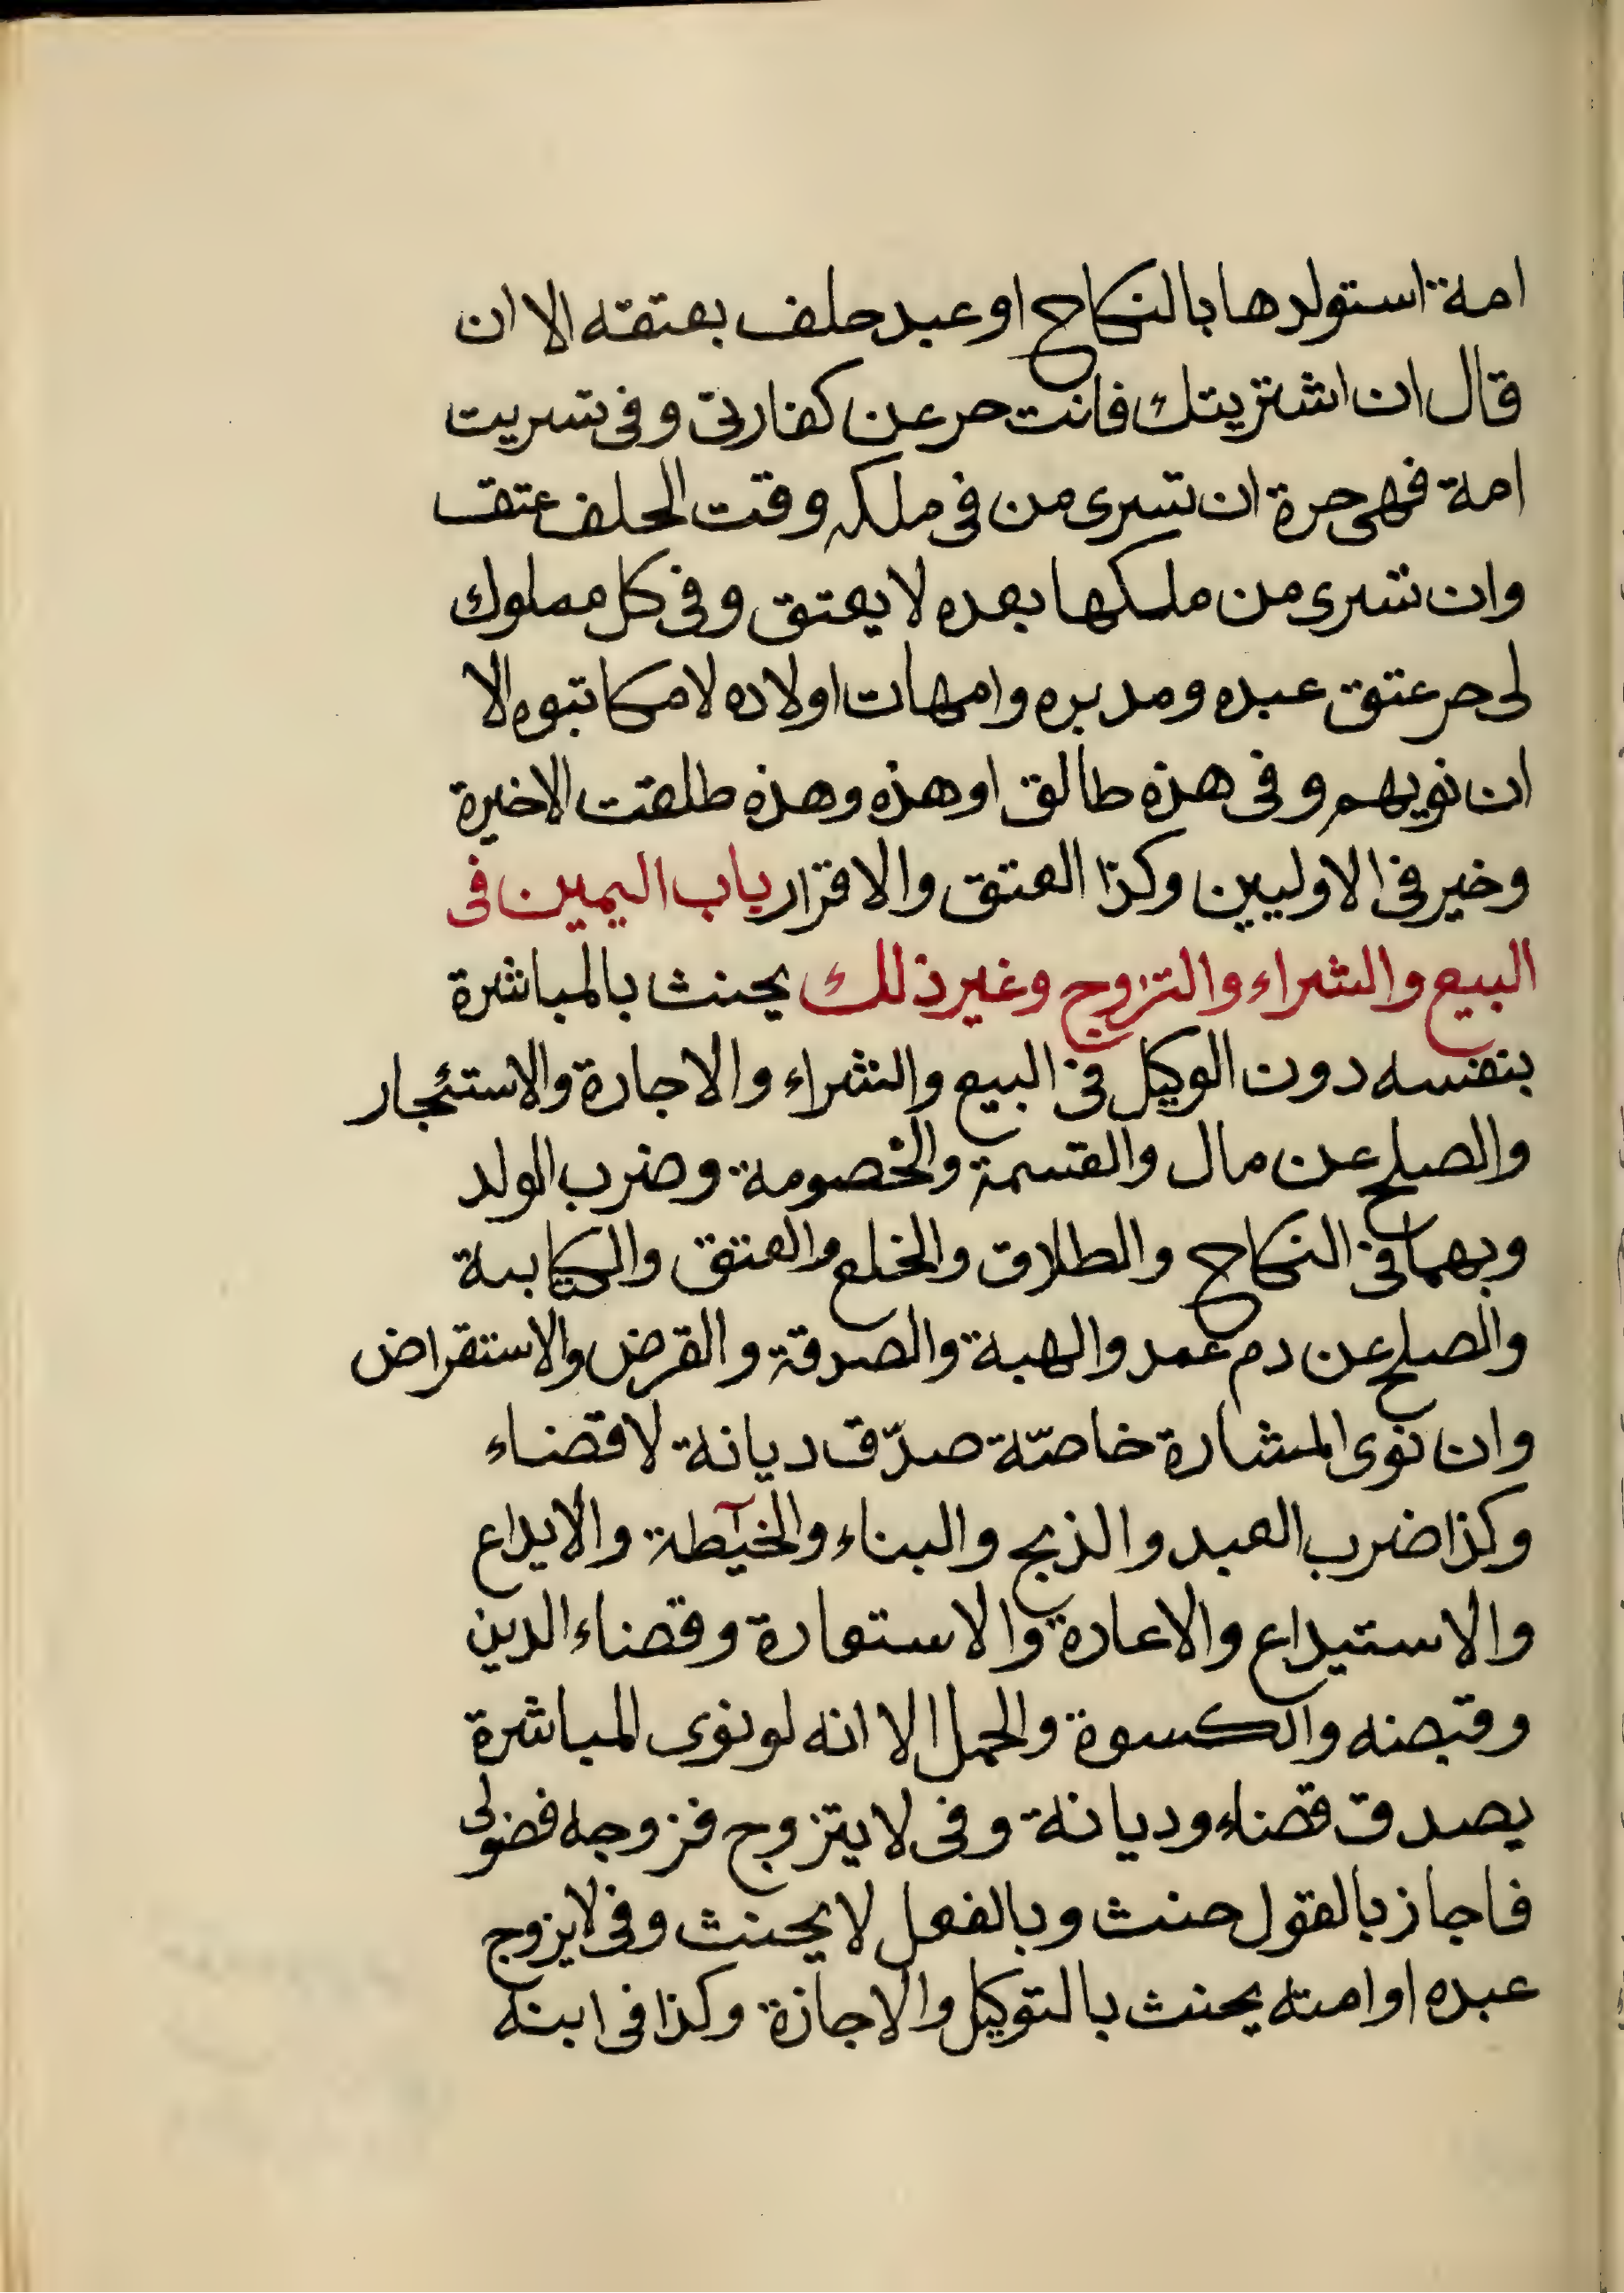 امة استولدها بالنكاح او عبد حلف بعتقه الا ان
قال ان اشتريتك فانت حر عن كفارتى وفى تسريت
امة فهى حرة ان تسرى من فى ملكه وقت الحلف عتق
وان تسرى من ملكها بعده لا يعتق وفى كل مملوك
لى حر عتق عبده ومدبره وامهات اولاده لا مكاتبوه الا
ان نويهم وفى هذه طالق او هذه وهذه طلقت الاخيرة
وخير فى الاوليين وكذا العتق والاقرار باب اليمين فى
البيع والشراء والتزوج وغير ذلك يحنث بالمباشرة
بنفسه دون الوكيل فى البيع والشراء والاجارة والاستئجار
والصلح عن مال والقسمة والخصومة وضرب الولد
وبهما فى النكاح والطلاق والخلع والعتق والكتابة
والصلح عن دم عمد والهبة والصدقة والقرض والاستقراض
وان نوى المشارة خاصّة صدّق ديانة لا قضاء
وكذا ضرب العبد والذبح والبناء والخيٰطة والايداع
والاستيداع والاعارة والاستعارة وقضاء الدين
وقبضه والكسوة والحمل الا انه لو نوى المباشرة
يصدق قضاء وديانة وفى لا يتزوج فزوجه فضولى
فاجاز بالقول حنث وبالفعل لا يحنث وفى لا يزوج
عبده او امته يحنث بالتوكيل والاجازة وكذا فى ابنه